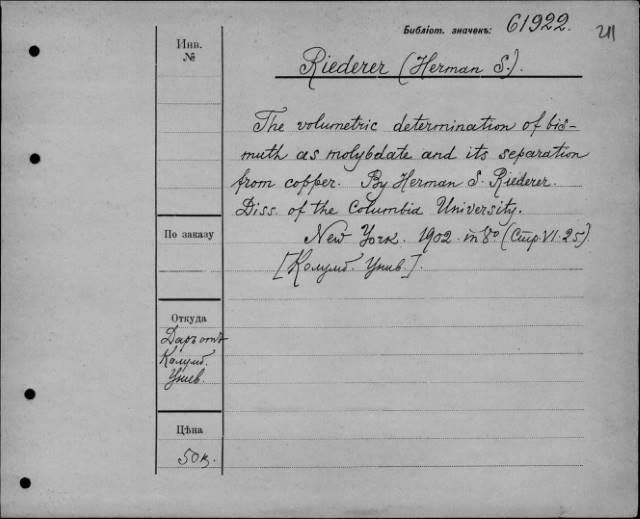 Библіот. значекъ: 61922. 211
Инв.
№
Riederer (Herman S.).
The volumetric determination of bis-
muth as molybdate and its separation
from copper. By Herman S. Riederer.
Diss. of the Columbia University.
New York. 1902. in 8º (Стр. VI. 25).
[Колумб. Унив.].
По заказу
Откуда
Даръ отъ
Колумб.
Унив.
Цѣна
50 к.